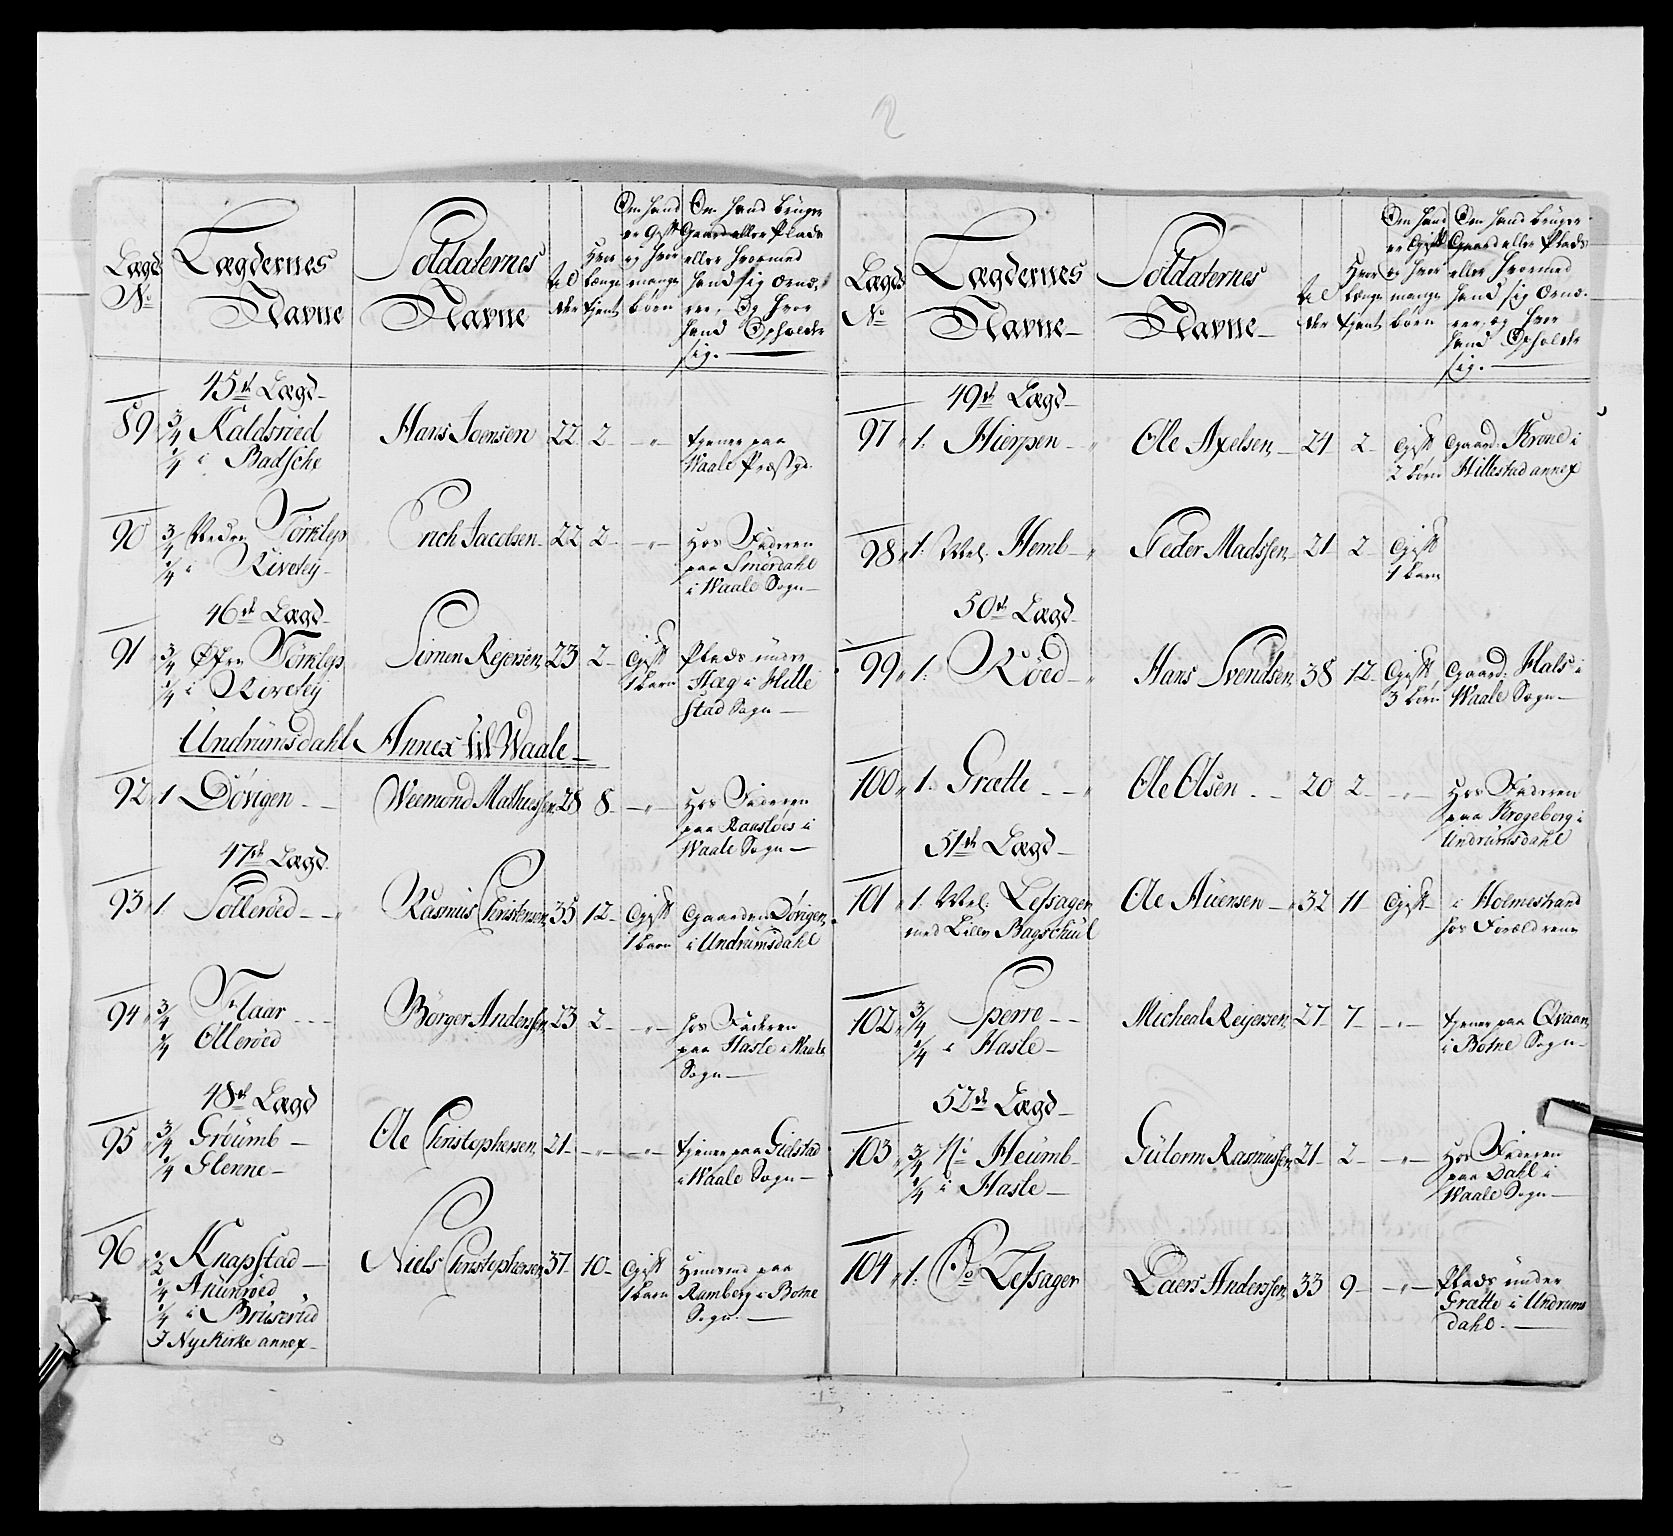 2
Lægd
No
Lægdernes
Navne
Soldaternes
Navne
Al
der
Hvor
længe
tjent
Om hand
er Gift
og hvor
mange
børn
Om hand bruger
Gaard eller Plads
eller hvormed
hand sig ernæ-
rer, Og hvor
hand Opholder
sig.
45de Lægd
89 3/4 Kaldsrød Hans Joensen 22 2 tjener paa
1/4 i Badsche Waale Præstgd.
90 3/4 Neder Törklep Erich Jacobsen 22 2 Hos Faderen
1/4 i Kivelsy paa Smördahl
i Waale Sogn
46de Lægd
91 3/4 Öfre Törklep Simon Rejersen 23 2 Gift Plads under
1/4 i Kivelsy 1 barn Hæg i Hille
stad Sogn
Undrumsdahl Annex til Waale
92 1 Dövigen Weemond Mathissen 28 8 Hos Faderen
paa Ranstöes i
Waale Sogn
47de Lægd
93 1. Solleröed Rasmus Christensen 35 12 Gift Gaarden Dövigen
1 barn i Undrumsdahl
94 3/4 Flaar Börger Anderssen 23 2 hos Faderen
1/4 Olleröed paa Hasle i Waale
Sogn
48de Lægd
95 3/4 Gröümb Ole Christophersen 21 tjener paa Gielstad
1/4 Glenne i Waale Sogn
96 1/2 Knapstad Niels Christophersen 37 10 Gift Huusmand paa
1/4 Anunröed 1 barn Ramberg i Botne
1/4 i Brüseröd Sogn.
I Nykirke annex
Lægd
No
Lægdernes
Navne
Soldaternes
Navne
Al
der
Hvor
længe
tjent
Om hand
er Gift
og hvor
mange
børn
Om hand bruger
Gaard eller Plads
eller hvormed
hand sig ernæ-
rer, og hvor
hand Opholder
sig.
49de Lægd
97 1. Hierpen Ole Axelsen 24 2 Gift Gaard: Krone i
2 börn Hillestad annex
98 1. Wel. Hemb Peder Madssen 21 2 Gift
1 barn
50de Lægd
99 1. Röed Hans Svendsen 38 12 Gift Gaard: Hals i
3 börn Waale Sogn
100 1. Grætte Ole Olsen 20 2 Hos Faderen
paa Brogeborg i
Undrumsdahl
51de Lægd
101 1. Wel. Lefsager Ole Auensen 32 11 Gift i Holmestrand
med Lille Bagschüül hos Forældrene
102 3/4 Sperre Micheal Reijersen 27 7 tjener paa Qvaan
1/4 i Hasle i Botne Sogn
52de Lægd
103 3/4 Heümb Gütorm Rasmussen 21 2 Hos Faderen
1/4 i Hasle paa Dahl i
Waale Sogn
104 1. Lefsager Laers Anderssen 33 9 Plads under
Grætte i Undrums
dahl.